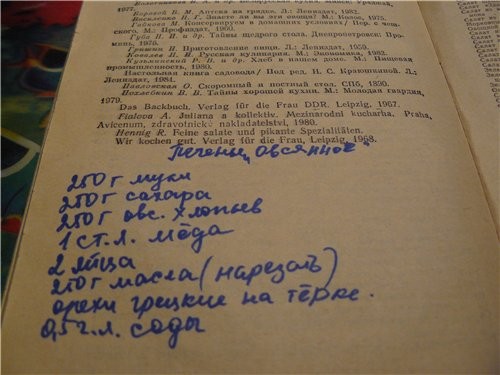 1977.
Васильева Н. Г. Знаете ли вы эти овощи? М.: Колос, 1975.
ского. М.: Профиздат, 1960.
Губа Н. И. и др. Тайны щедрого стола. Днепропетровск: Про-
минь, 1970.
Приготовление пищи. Л.: Лениздат, 1959.
Ковалев В. М. Русская кулинария. М.: Экономика, 1983.
Р. В. и др. Хлеб в нашем доме. М.: Пищевая
промышленность, 1980.
Настольная книга садовода/ Под ред. Н. С. Краюшкиной. Л.:
Лениздат, 1984.
О. Скоромный и постный стол. СПб, 1830.
Похлебкин В. В. Тайны хорошей кухни. М.: Молодая гвардия,
1979.
Das Backbuch. Verlag für die Frau DDR. Leipzig, 1967.
Fialova A. Juliana a kolektiv. Mezinarodni kucharka. Praha,
Avicenum, zdravotnické nakladatelství, 1980.
Hennig R. Feine salate und pikante Spezialitäten.
Wir kochen gut. Verlag für die Frau, Leipzig, 1968.
Печенье „Овсянное"
250 г муки
250 г сахара
250 г овс. хлопьев
1 ст. л. мёда
2 яйца
250 г масла (нарезать)
орехи грецкие на тёрке.
0,5 г. л. соды